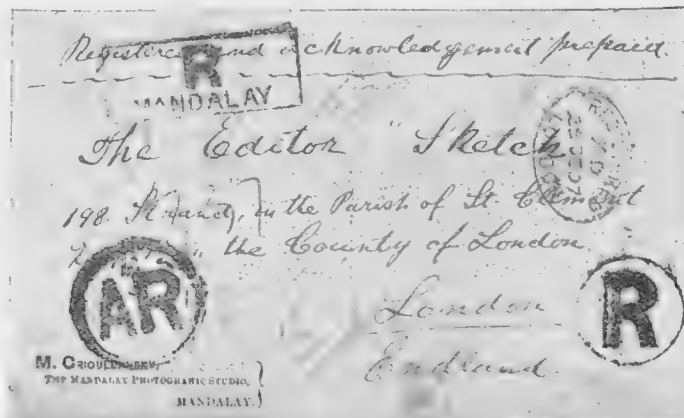 Registered and acknowledgement prepaid.
R
MANDALAY
The Editor "Sketch
198 Strand, in the Parish of St. Clement
the County of London.
London
England.
AR
R
M.
THE MANDALAY PHOTOGRAPHIC STUDIO,
MANDALAY.